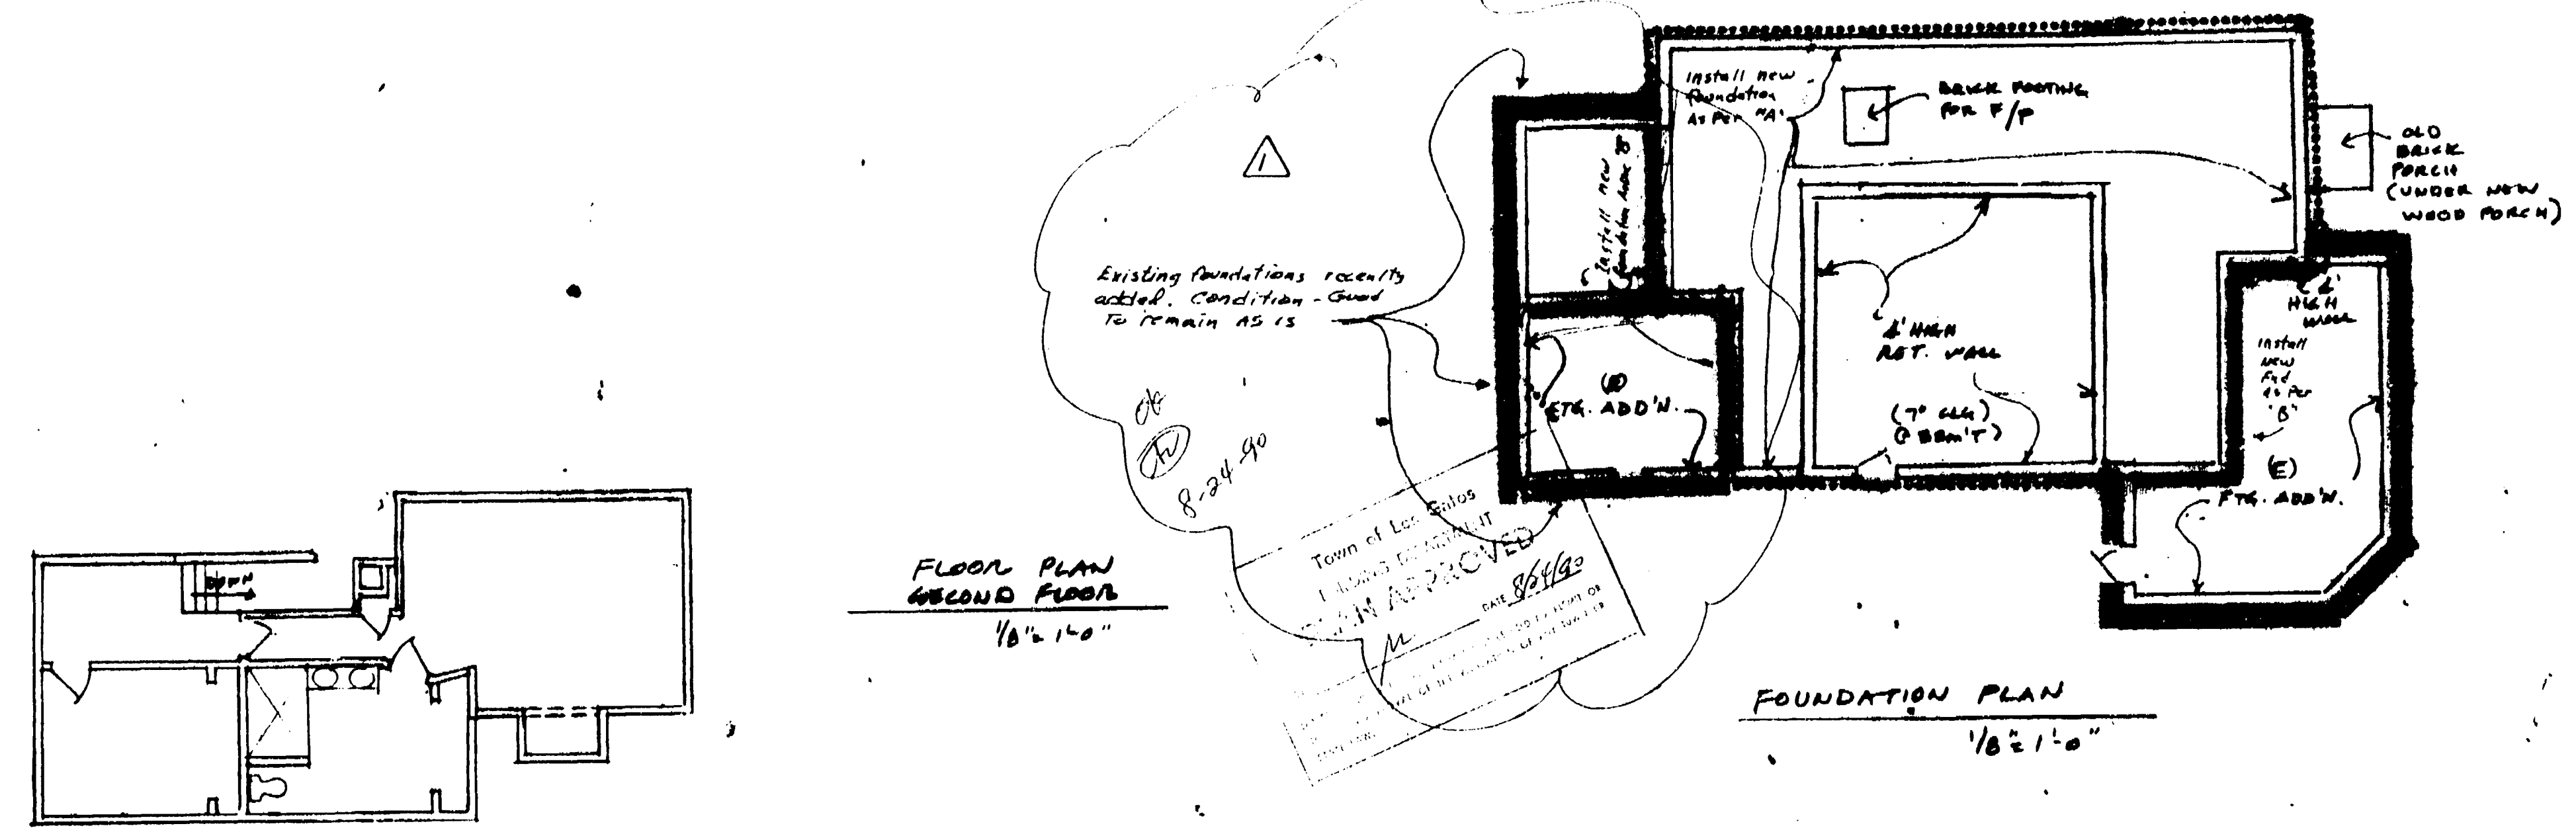 DOWN
FLOOR PLAN
SECOND FLOOR
1/8" = 1'-0"
1
Existing foundations recently
added. Condition - Good
To remain AS IS
OK
8-24-90
Town of Los Gatos
BUILDING DEPARTMENT
PLAN APPROVED
DATE 8/24/90
Install new
foundation
As Per "A"
BRICK FOOTING
FOR F/P
OLD
BRICK
PORCH
(UNDER NEW
WOOD PORCH)
Install new
foundation
4' HIGH
RET. WALL
(E)
FTG. ADD'N.
4'
HIGH
WALL
Install
New
Fnd
As Per
"B"
(E)
FTG. ADD'N.
FOUNDATION PLAN
1/8" = 1'-0"